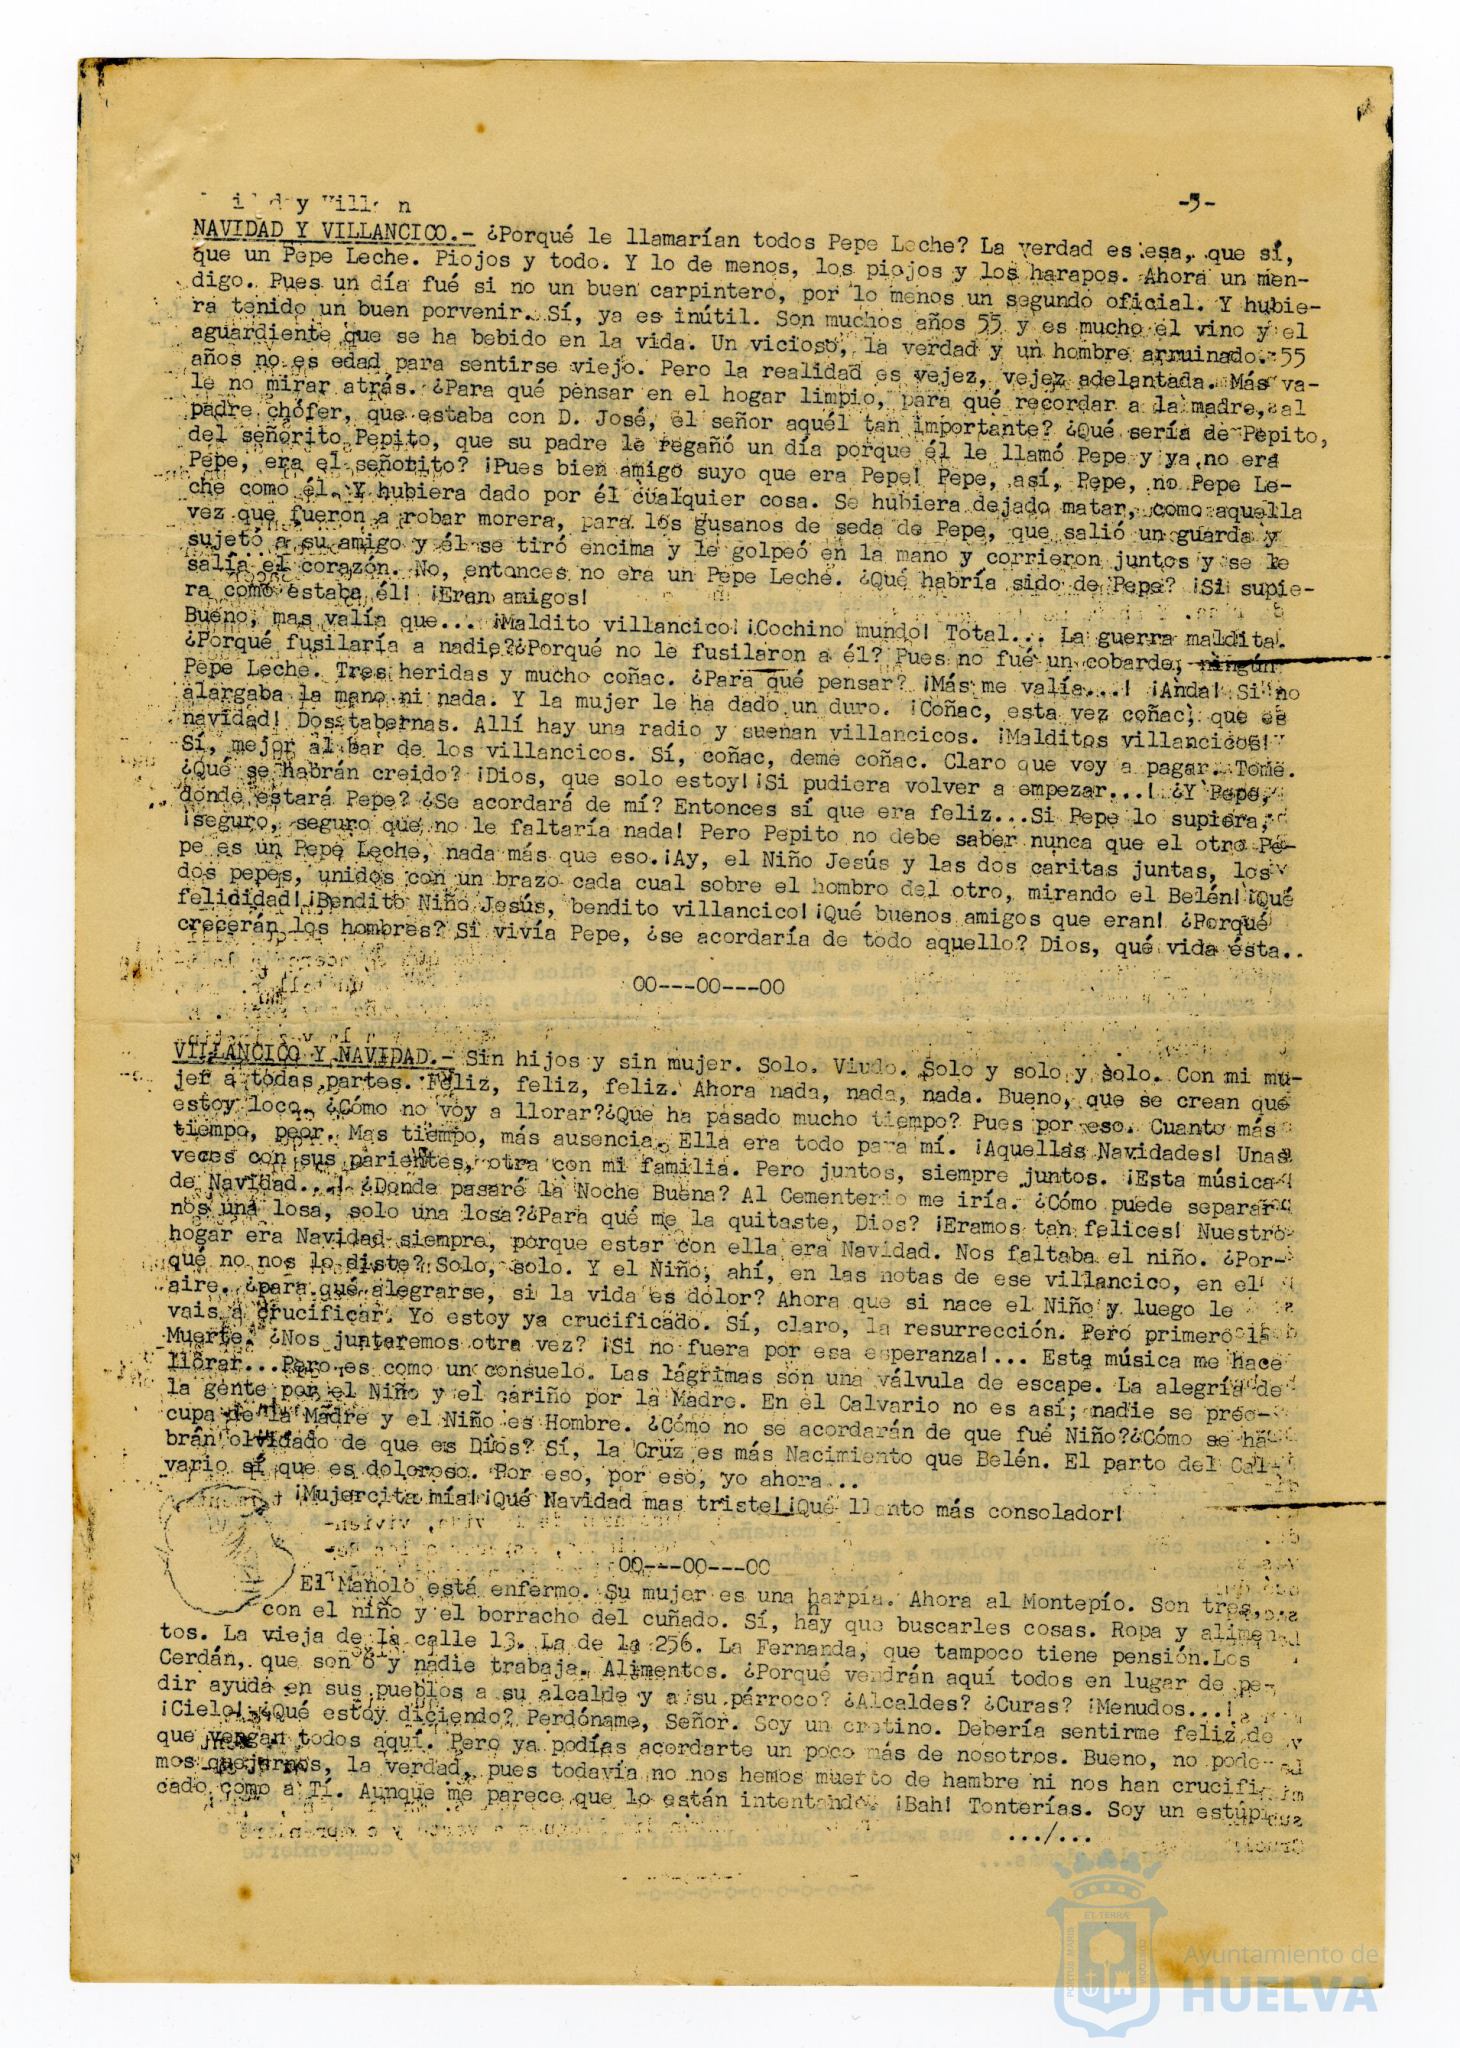 -3-
NAVIDAD Y VILLANCICO.- ¿Porqué le llamarían todos Pepe Leche? La verdad es esa, que sí,
que un Pepe Leche. Piojos y todo. Y lo de menos, los piojos y los harapos. Ahora un men-
digo. Pues un día fué si no un buen carpintero, por lo menos un segundo oficial. Y hubie-
ra tenido un buen porvenir. Sí, ya es inútil. Son muchos años 55 y es mucho el vino y el
aguardiente que se ha bebido en la vida. Un vicioso, la verdad y un hombre arruinado. 55
años no es edad para sentirse viejo. Pero la realidad es vejez, vejez adelantada. Más va-
le no mirar atrás. ¿Para qué pensar en el hogar limpio, para qué recordar a la madre, al
padre chófer, que estaba con D. José, el señor aquél tan importante? ¿Qué sería de Pepito,
del señorito Pepito, que su padre le regañó un día porque él le llamó Pepe y ya no era
Pepe, era el señorito? ¡Pues bien amigo suyo que era Pepe! Pepe, así, Pepe, no Pepe Le-
che como él. Y hubiera dado por él cualquier cosa. Se hubiera dejado matar, como aquella
vez que fueron a robar morera, para los gusanos de seda de Pepe, que salió un guarda y
sujetó a su amigo y él se tiró encima y le golpeó en la mano y corrieron juntos y se le
salía el corazón. No, entonces no era un Pepe Leche. ¿Qué habría sido de Pepe? ¡Si supie-
ra como estaba él! ¡Eran amigos!
Bueno, mas valía que... ¡Maldito villancico! ¡Cochino mundo! Total... La guerra maldita.
¿Porqué fusilaría a nadie? ¿Porqué no le fusilaron a él? Pues no fué un cobarde, ningún
Pepe Leche. Tres heridas y mucho coñac. ¿Para qué pensar? ¡Más me valía...! ¡Anda! Si no
alargaba la mano ni nada. Y la mujer le ha dado un duro. ¡Coñac, esta vez coñac, que es
navidad! Dos tabernas. Allí hay una radio y suenan villancicos. ¡Malditos villancicos!
Sí, mejor al bar de los villancicos. Sí, coñac, deme coñac. Claro que voy a pagar. Tome.
¿Qué se habrán creido? ¡Dios, que solo estoy! ¡Si pudiera volver a empezar...! ¿Y Pepe,
donde estará Pepe? ¿Se acordará de mí? Entonces sí que era feliz...Si Pepe lo supiera,
¡seguro, seguro que no le faltaría nada! Pero Pepito no debe saber nunca que el otro Pe-
pe es un Pepe Leche, nada más que eso. ¡Ay, el Niño Jesús y las dos caritas juntas, los
dos pepes, unidos con un brazo cada cual sobre el hombro del otro, mirando el Belén! ¡Qué
felicidad! ¡Bendito Niño Jesús, bendito villancico! ¡Qué buenos amigos que eran! ¿Porqué
crecerán los hombres? Si vivía Pepe, ¿se acordaría de todo aquello? Dios, qué vida ésta..
00---00---00
VILLANCICO Y NAVIDAD.- Sin hijos y sin mujer. Solo. Viudo. Solo y solo y solo. Con mi mu-
jer a todas partes. Feliz, feliz, feliz. Ahora nada, nada, nada. Bueno, que se crean que
estoy loco. ¿Cómo no voy a llorar? ¿Que ha pasado mucho tiempo? Pues por eso. Cuanto más
tiempo, peor. Mas tiempo, más ausencia. Ella era todo para mí. ¡Aquellas Navidades! Unas
veces con sus parientes, otra con mi familia. Pero juntos, siempre juntos. ¡Esta música
de Navidad...! ¿Donde pasaré la Noche Buena? Al Cementerio me iría. ¿Cómo puede separar
nos una losa, solo una losa? ¿Para qué me la quitaste, Dios? ¡Eramos tan felices! Nuestro
hogar era Navidad siempre, porque estar con ella era Navidad. Nos faltaba el niño. ¿Por-
qué no nos lo diste? Solo, solo. Y el Niño, ahí, en las notas de ese villancico, en el
aire. ¿para qué alegrarse, si la vida es dolor? Ahora que si nace el Niño y luego le
vais a crucificar. Yo estoy ya crucificado. Sí, claro, la resurrección. Pero primero la
Muerte. ¿Nos juntaremos otra vez? ¡Si no fuera por esa esperanza!... Esta música me hace
llorar...Pero es como un consuelo. Las lágrimas son una válvula de escape. La alegría de
la gente por el Niño y el cariño por la Madre. En el Calvario no es así; nadie se preo-
cupa de la Madre y el Niño es Hombre. ¿Cómo no se acordarán de que fué Niño? ¿Cómo se ha-
brán olvidado de que es Dios? Sí, la Cruz es más Nacimiento que Belén. El parto del Cal-
vario sí que es doloroso. Por eso, por eso, yo ahora...
¡Mujercita mía! ¡Qué Navidad mas triste! ¡Qué llanto más consolador!
00---00---00
El Manolo está enfermo. Su mujer es una harpía. Ahora al Montepío. Son tres,
con el niño y el borracho del cuñado. Sí, hay que buscarles cosas. Ropa y alimen
tos. La vieja de la calle 13. La de la 256. La Fernanda, que tampoco tiene pensión. Los
Cerdán, que son 8 y nadie trabaja. Alimentos. ¿Porqué vendrán aquí todos en lugar de pe-
dir ayuda en sus pueblos a su alcalde y a su párroco? ¿Alcaldes? ¿Curas? ¡Menudos...!
¡Cielo! ¿Qué estoy diciendo? Perdóname, Señor. Soy un cretino. Debería sentirme feliz de
que vengan todos aquí. Pero ya podías acordarte un poco más de nosotros. Bueno, no pode-
mos quejarnos, la verdad, pues todavía no nos hemos muerto de hambre ni nos han crucifi
cado como a Tí. Aunque me parece que lo están intentando. ¡Bah! Tonterías. Soy un estúpi
.../...
PORTUS MARIS ET TERRAE CUSTODIA
Ayuntamiento de
HUELVA